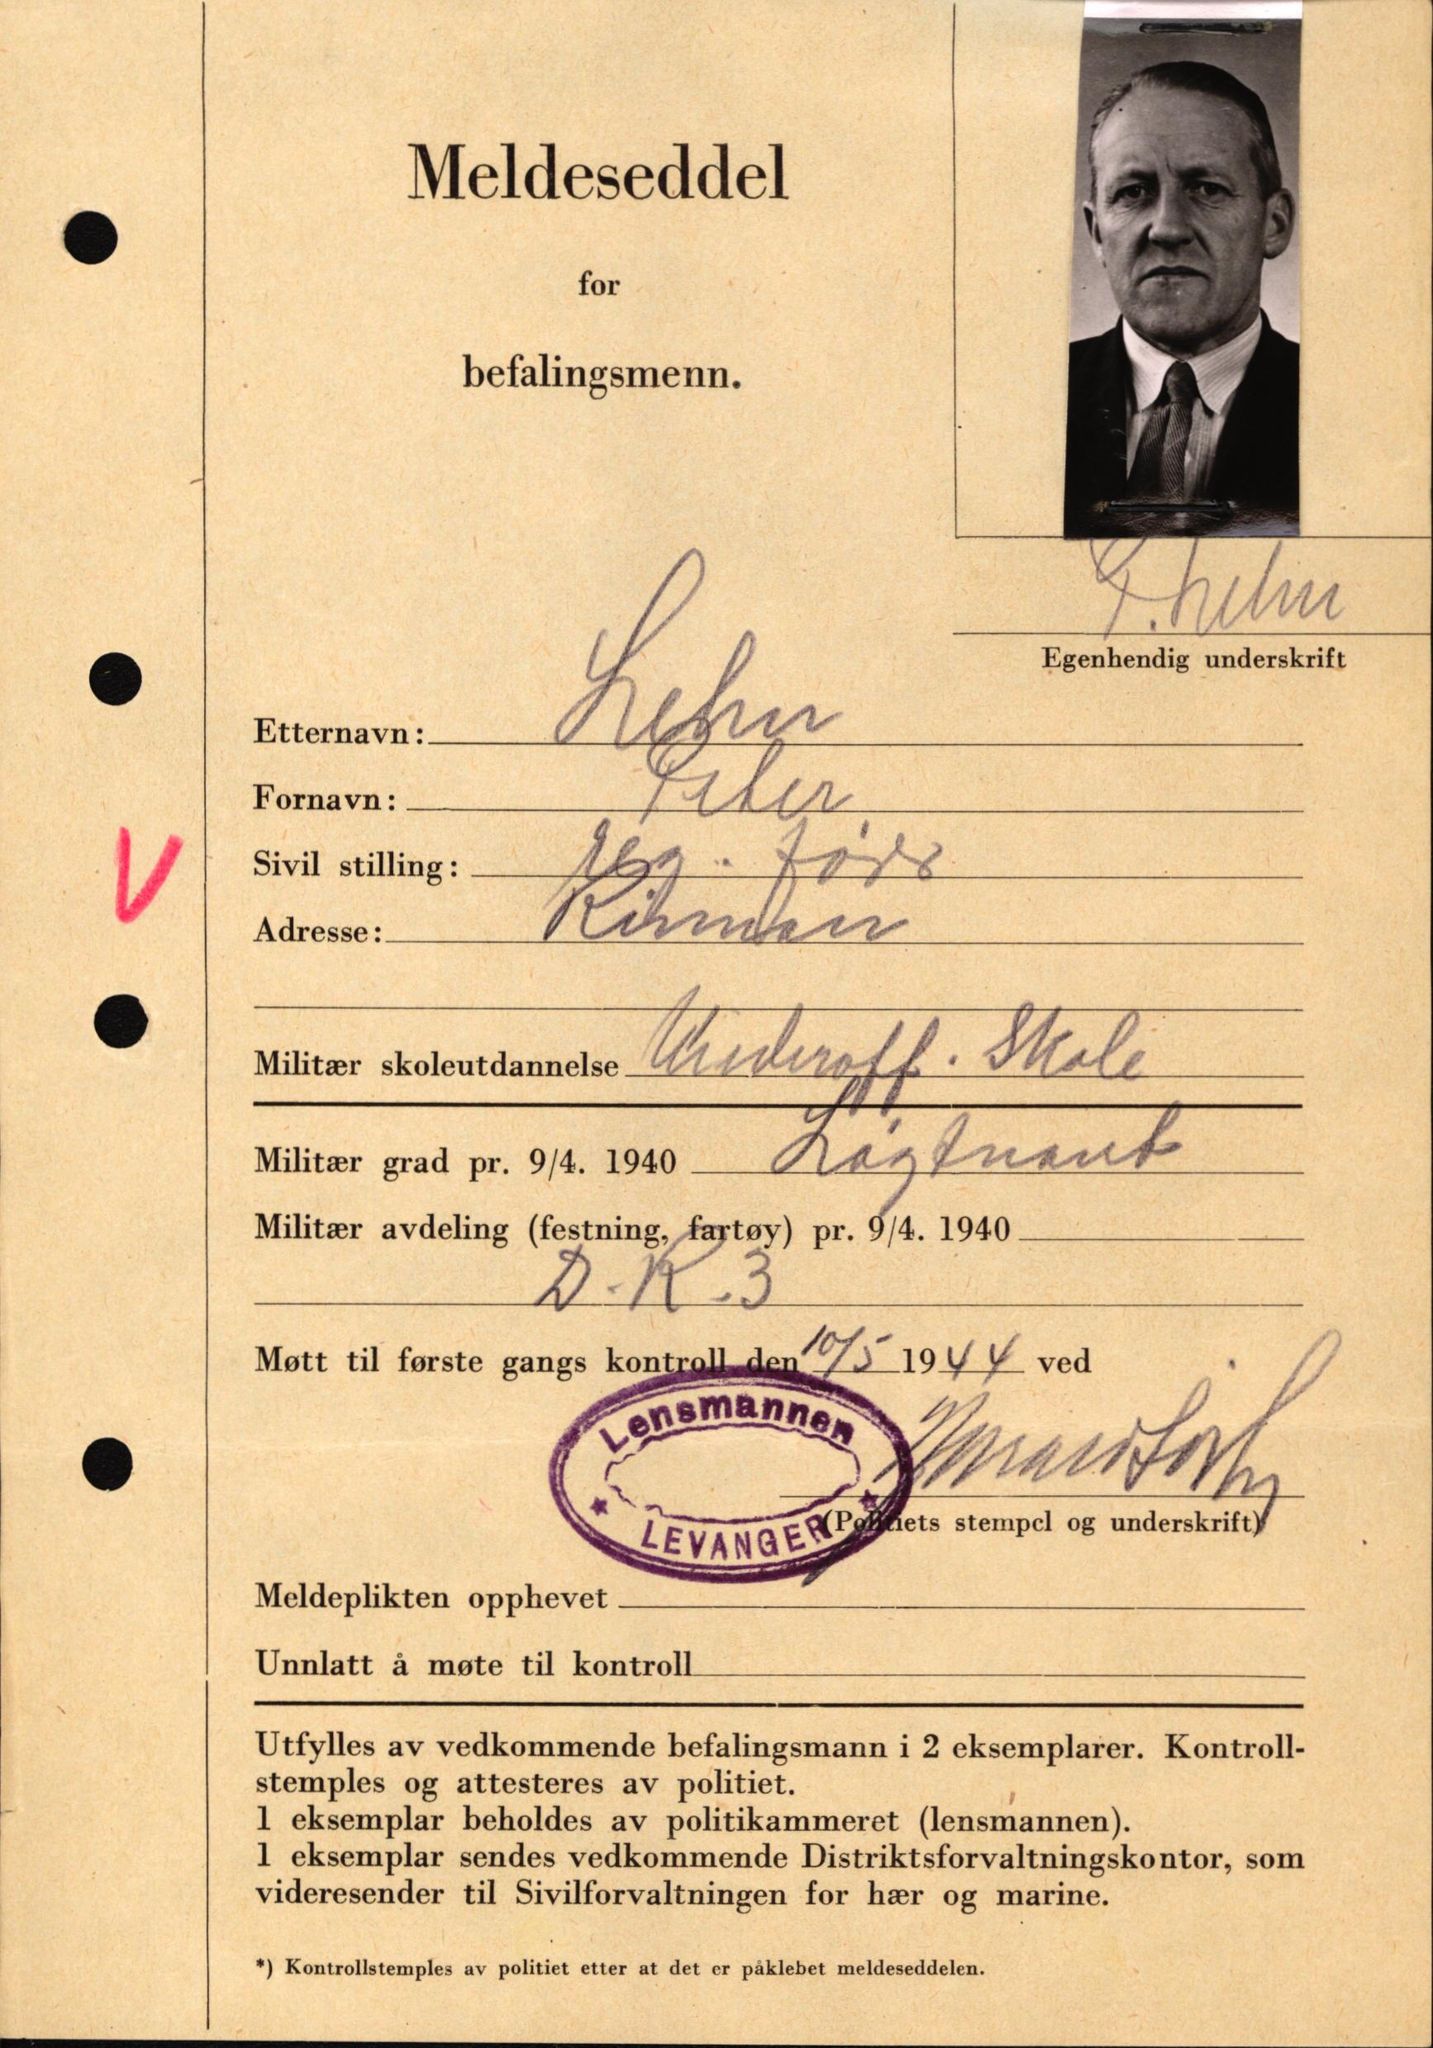 Meldeseddel
for
befalingsmenn.
P. Lehn
Egenhendig underskrift
Etternavn: Lehn
Fornavn: Peter
Sivil stilling: reg. fører
Adresse: Rinnan
Militær skoleutdannelse Underoff. Skole
Militær grad pr. 9/4. 1940 Løgtnant
Militær avdeling (festning, fartøy) pr. 9/4. 1940
D.K.3
Møtt til første gangs kontroll den 10/5 1944 ved
Lensmannen
LEVANGER
(Politiets stempel og underskrift)
Meldeplikten opphevet
Unnlatt å møte til kontroll
Utfylles av vedkommende befalingsmann i 2 eksemplarer. Kontroll-
stemples og attesteres av politiet.
1 eksemplar beholdes av politikammeret (lensmannen).
1 eksemplar sendes vedkommende Distriktsforvaltningskontor, som
videresender til Sivilforvaltningen for hær og marine.
*) Kontrollstemples av politiet etter at det er påklebet meldeseddelen.